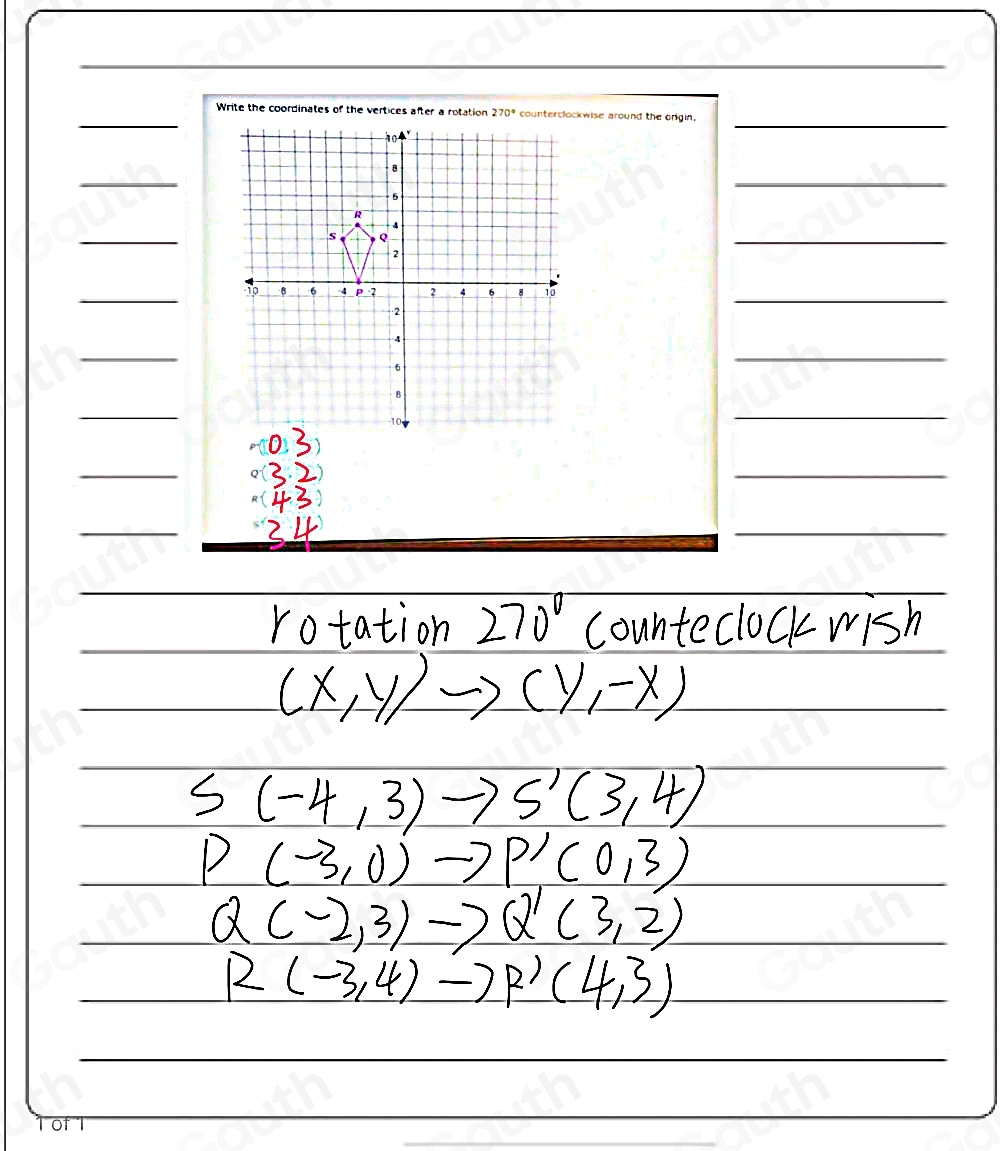 Write the coordinates of the vertices after a rotation 270° counterclockwise around the origin.
10 y
8
6
R
4
S Q
2
x
-10 -8 -6 -4 P -2 2 4 6 8 10
-2
-4
-6
-8
-10
P'(0,3)
Q'(3,2)
R'(4,3)
S'(3,4)
rotation 270° counteclockwish
(X,Y) → (Y,-X)
S (-4,3) → S'(3,4)
P (-3,0) → P'(0,3)
Q (-2,3) → Q'(3,2)
R (-3,4) → R'(4,3)
1 of 1
Gauth